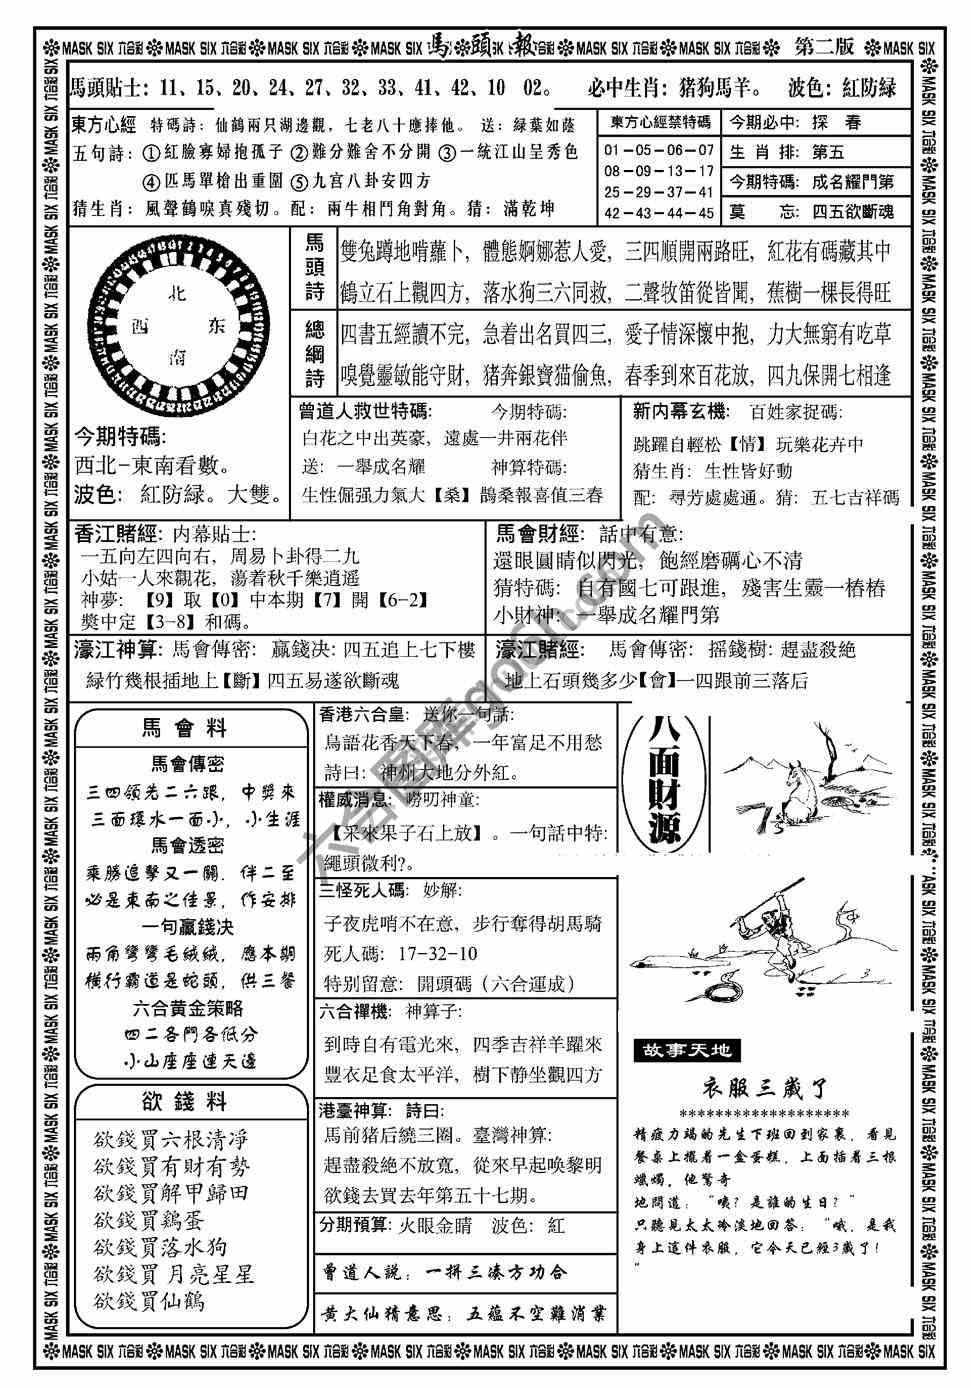 MASK SIX 六合彩 MASK SIX 六合彩 MASK SIX 六合彩 MASK SIX 馬頭報 MASK SIX 六合彩 MASK SIX 六合彩 第二版 MASK SIX
馬頭貼士：11、15、20、24、27、32、33、41、42、10 02。 必中生肖：猪狗馬羊。 波色：紅防緑
東方心經 特碼詩：仙鶴兩只湖邊觀，七老八十應捧他。 送：緑葉如蔭
五句詩：①紅臉寡婦抱孤子 ②難分難舍不分開 ③一統江山呈秀色
④匹馬單槍出重圍 ⑤九宫八卦安四方
猜生肖：風聲鶴唳真殘切。配：兩牛相鬥角對角。猜：滿乾坤
東方心經禁特碼
01-05-06-07
08-09-13-17
25-29-37-41
42-43-44-45
今期必中：探 春
生 肖 排：第五
今期特碼：成名耀門第
莫 忘：四五欲斷魂
北
西 东
南
今期特碼:
西北-東南看數。
波色：紅防緑。大雙。
馬頭詩
雙兔蹲地啃蘿卜，體態婀娜惹人愛，三四順開兩路旺，紅花有碼藏其中
鶴立石上觀四方，落水狗三六同救，二聲牧笛從皆聞，蕉樹一棵長得旺
總綱詩
四書五經讀不完，急着出名買四三，愛子情深懷中抱，力大無窮有吃草
嗅覺靈敏能守財，猪奔銀寶猫偷魚，春季到來百花放，四九保開七相逢
曾道人救世特碼: 今期特碼:
白花之中出英豪，遠處一井兩花伴
送：一舉成名耀 神算特碼:
生性倔强力氣大【桑】鹊桑報喜值三春
新内幕玄機：百姓家捉碼:
跳躍自輕松【情】玩樂花卉中
猜生肖：生性皆好動
配：尋芳處處通。猜：五七吉祥碼
香江賭經: 内幕貼士:
一五向左四向右，周易卜卦得二九
小姑一人來觀花，蕩着秋千樂逍遥
神夢：【9】取【0】中本期【7】開【6-2】
獎中定【3-8】和碼。
馬會財經: 話中有意:
還眼圓睛似閃光，飽經磨礪心不清
猜特碼：自有國七可跟進，殘害生靈一樁樁
小財神：一舉成名耀門第
濠江神算: 馬會傳密: 贏錢决: 四五追上七下樓
緑竹幾根插地上【斷】四五易遂欲斷魂
濠江賭經: 馬會傳密: 摇錢樹: 趕盡殺絶
地上石頭幾多少【會】一四跟前三落后
馬會料
馬會傳密
三四領先二六跟，中獎來
三面環水一面小，小生涯
馬會透密
乘勝追擊又一關，伴二至
必是東南之佳景，作安排
一句贏錢决
兩角彎彎毛絨絨，應本期
橫行霸道是蛇頭，供三餐
六合黄金策略
四二各門各低分
小山座座連天邊
欲錢料
欲錢買六根清净
欲錢買有財有勢
欲錢買解甲歸田
欲錢買鷄蛋
欲錢買落水狗
欲錢買 月亮星星
欲錢買仙鶴
香港六合皇: 送你一句話:
鳥語花香天下春，一年富足不用愁
詩曰：神州大地分外紅。
權威消息: 嘮叨神童:
【采來果子石上放】。一句話中特:
繩頭微利?。
三怪死人碼: 妙解:
子夜虎哨不在意，步行奪得胡馬騎
死人碼：17-32-10
特别留意：開頭碼（六合運成）
六合禪機: 神算子:
到時自有電光來，四季吉祥羊躍來
豐衣足食太平洋，樹下静坐觀四方
港臺神算: 詩曰:
馬前猪后繞三圈。臺灣神算:
趕盡殺絶不放寬，從來早起唤黎明
欲錢去買去年第五十七期。
分期預算: 火眼金睛 波色：紅
曾道人説：一拼三凑方功合
黄大仙猜意思：五蕴不空難消業
八面財源
故事天地
衣服三歲了
*******************
精疲力竭的先生下班回到家裏，看見
餐桌上擺着一盒蛋糕，上面插着三根
蠟燭，他驚奇
地問道：“咦？是誰的生日？”
只聽見太太冷淡地回答：“哦，是我
身上這件衣服，它今天已經3歲了！
”
MASK SIX 六合彩 MASK SIX 六合彩 MASK SIX 六合彩 MASK SIX 六合彩 MASK SIX 六合彩 MASK SIX 六合彩 MASK SIX 六合彩 MASK SIX 六合彩 MASK SIX